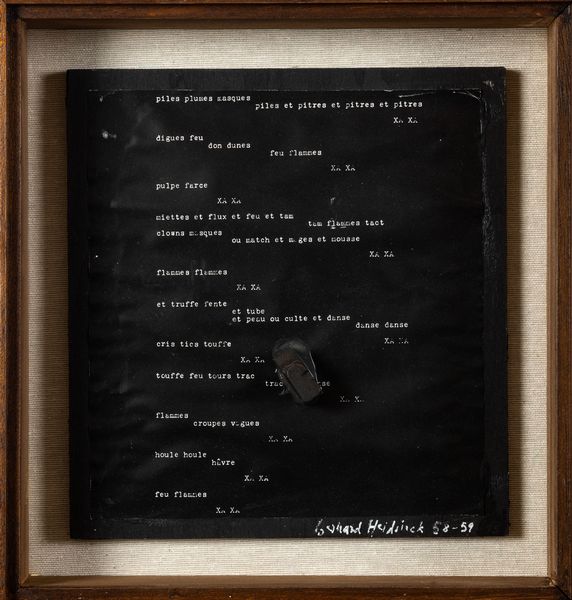 piles plumes masques
piles et pitres et pitres et pitres
XA XA
digues feu
don dunes
feu flammes
XA XA
pulpe farce
XA XA
miettes et flux et feu et tam
tam flammes tact
clowns masques
ou match et mages et mousse
XA XA
flammes flammes
XA XA
et truffe fente
et tube
et peau ou culte et danse
danse danse
cris tics touffe
XA XA
XA XA
touffe feu tours trac
trac
XA
flammes
croupes vagues
XA XA
houle houle
hâvre
XA XA
feu flammes
XA XA
58-59